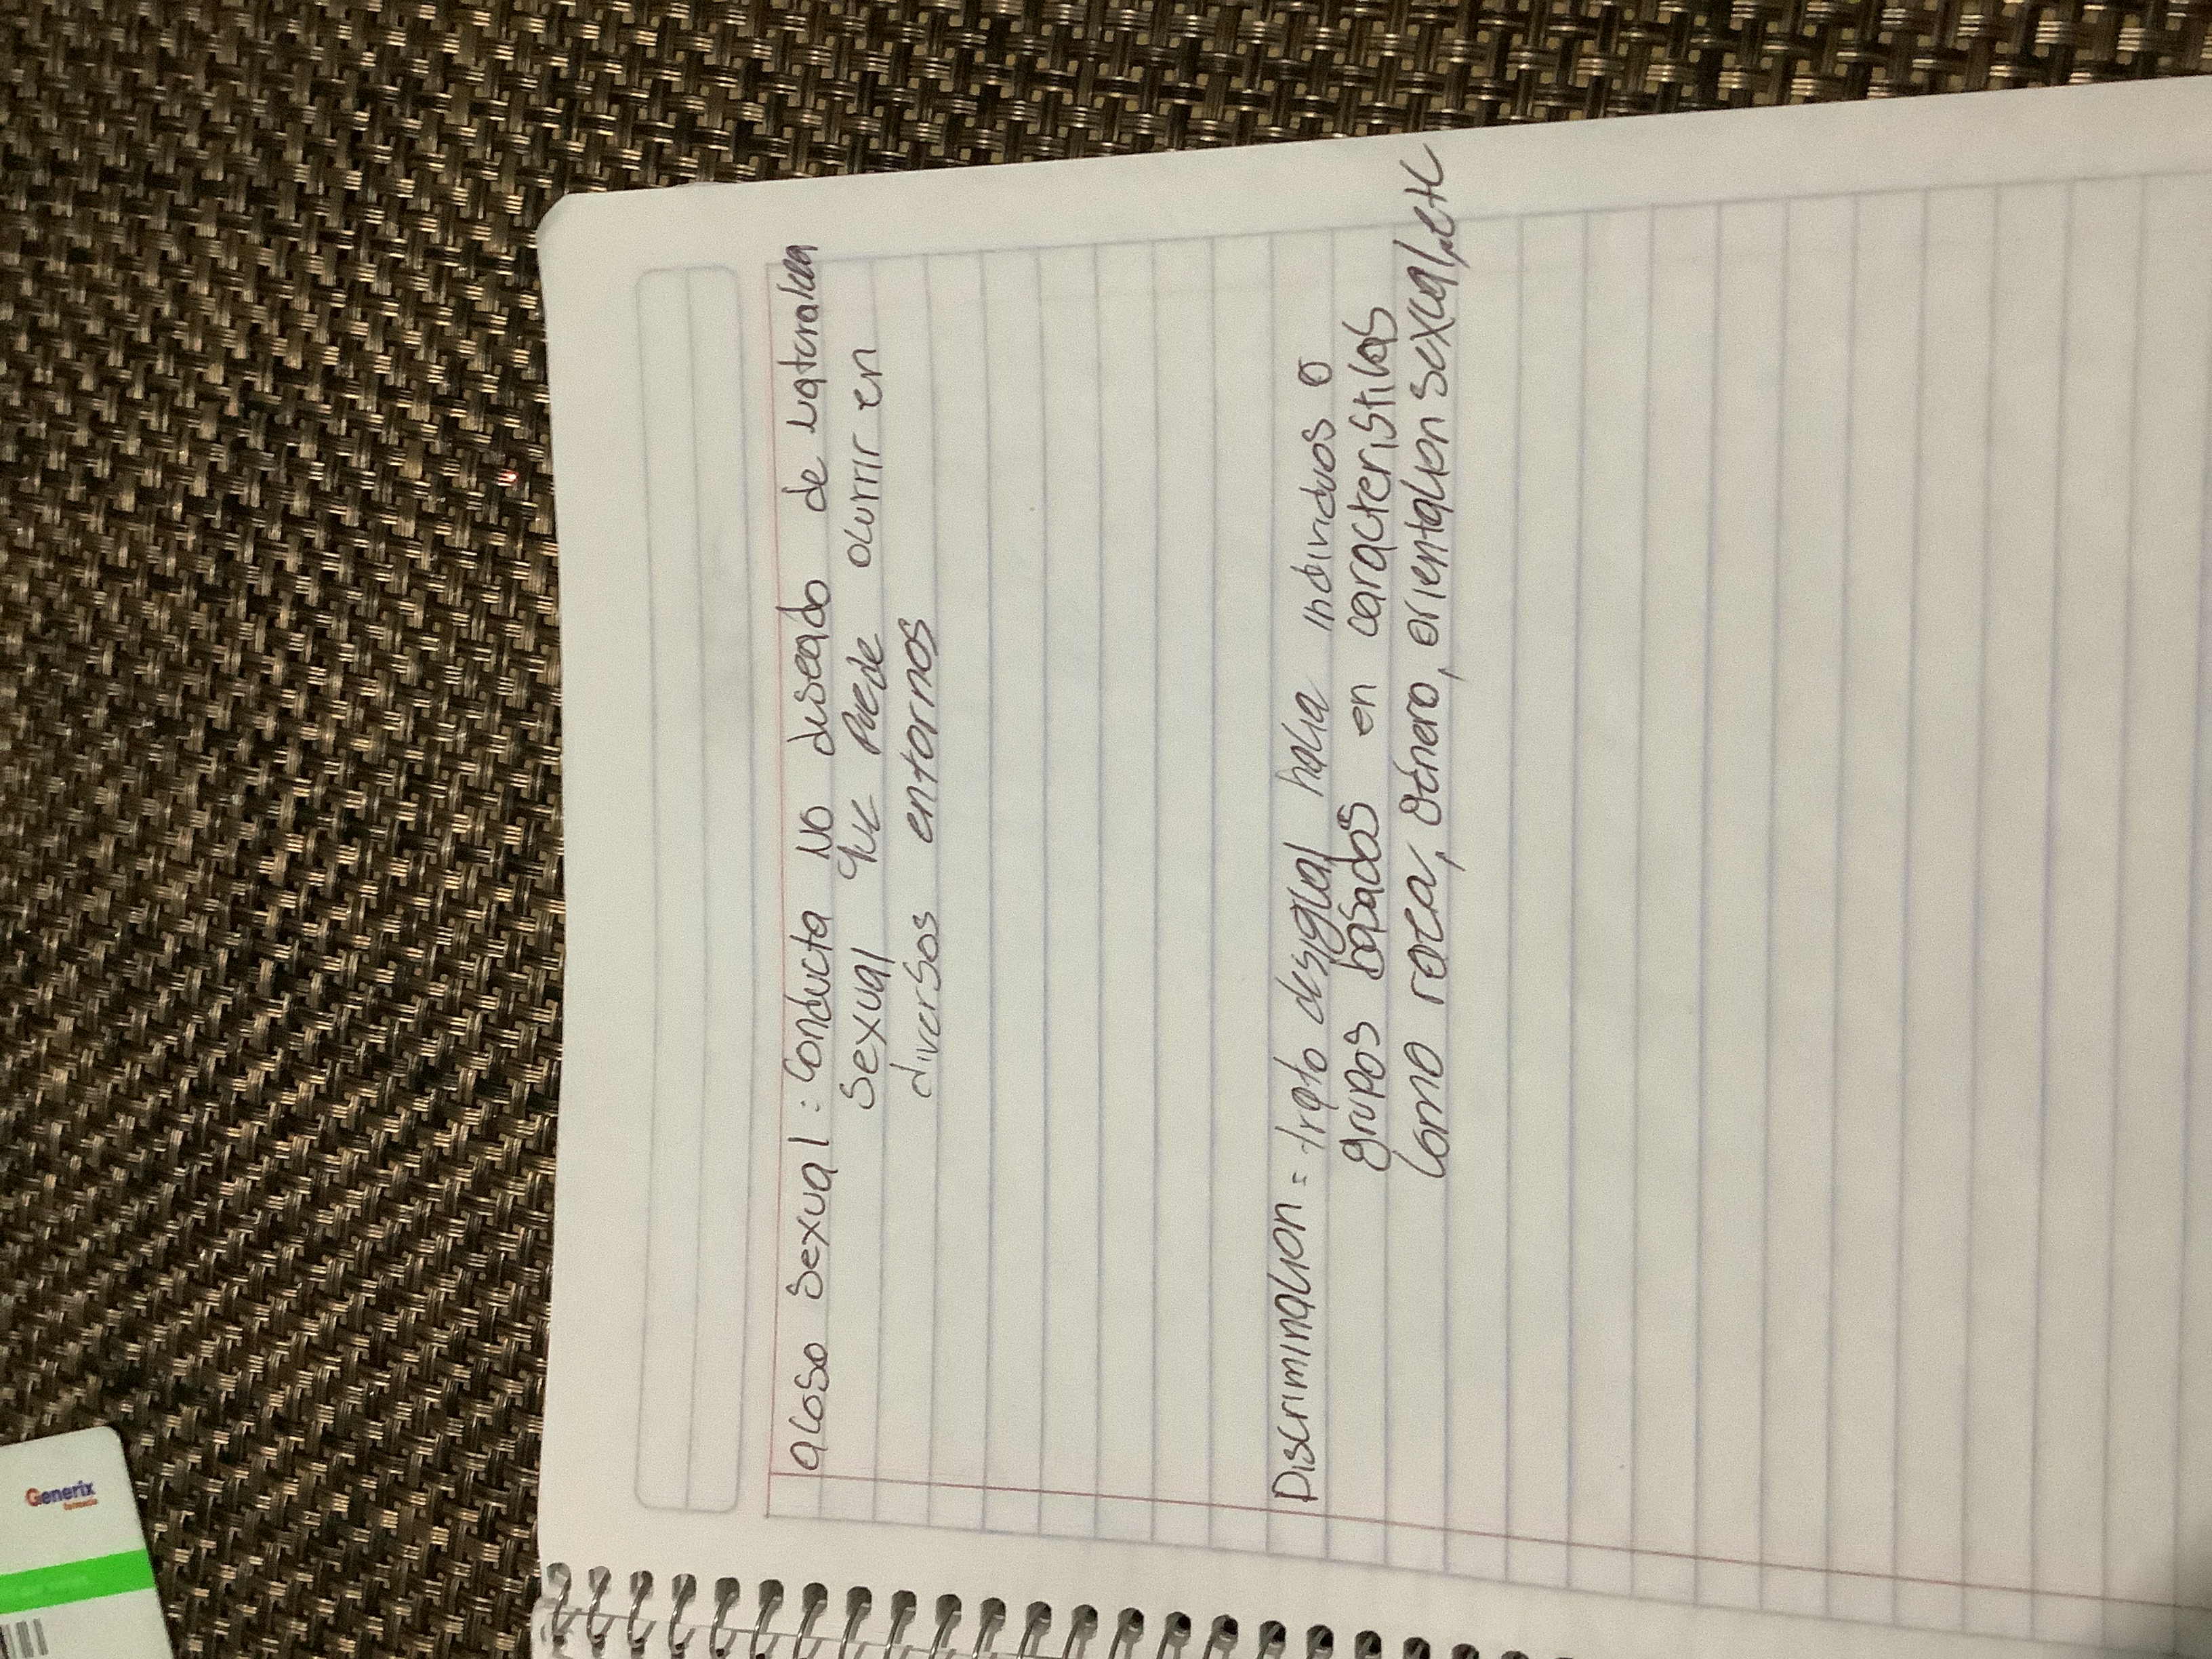 acoso sexual: Conducta no deseado de naturaleza
sexual que puede ocurrir en
diversos entornos
Discriminacion = trato desigual hacia individuos o
grupos basados en caracteristicas
como raza, género, orientacion sexual, etc
Generix
farmacia